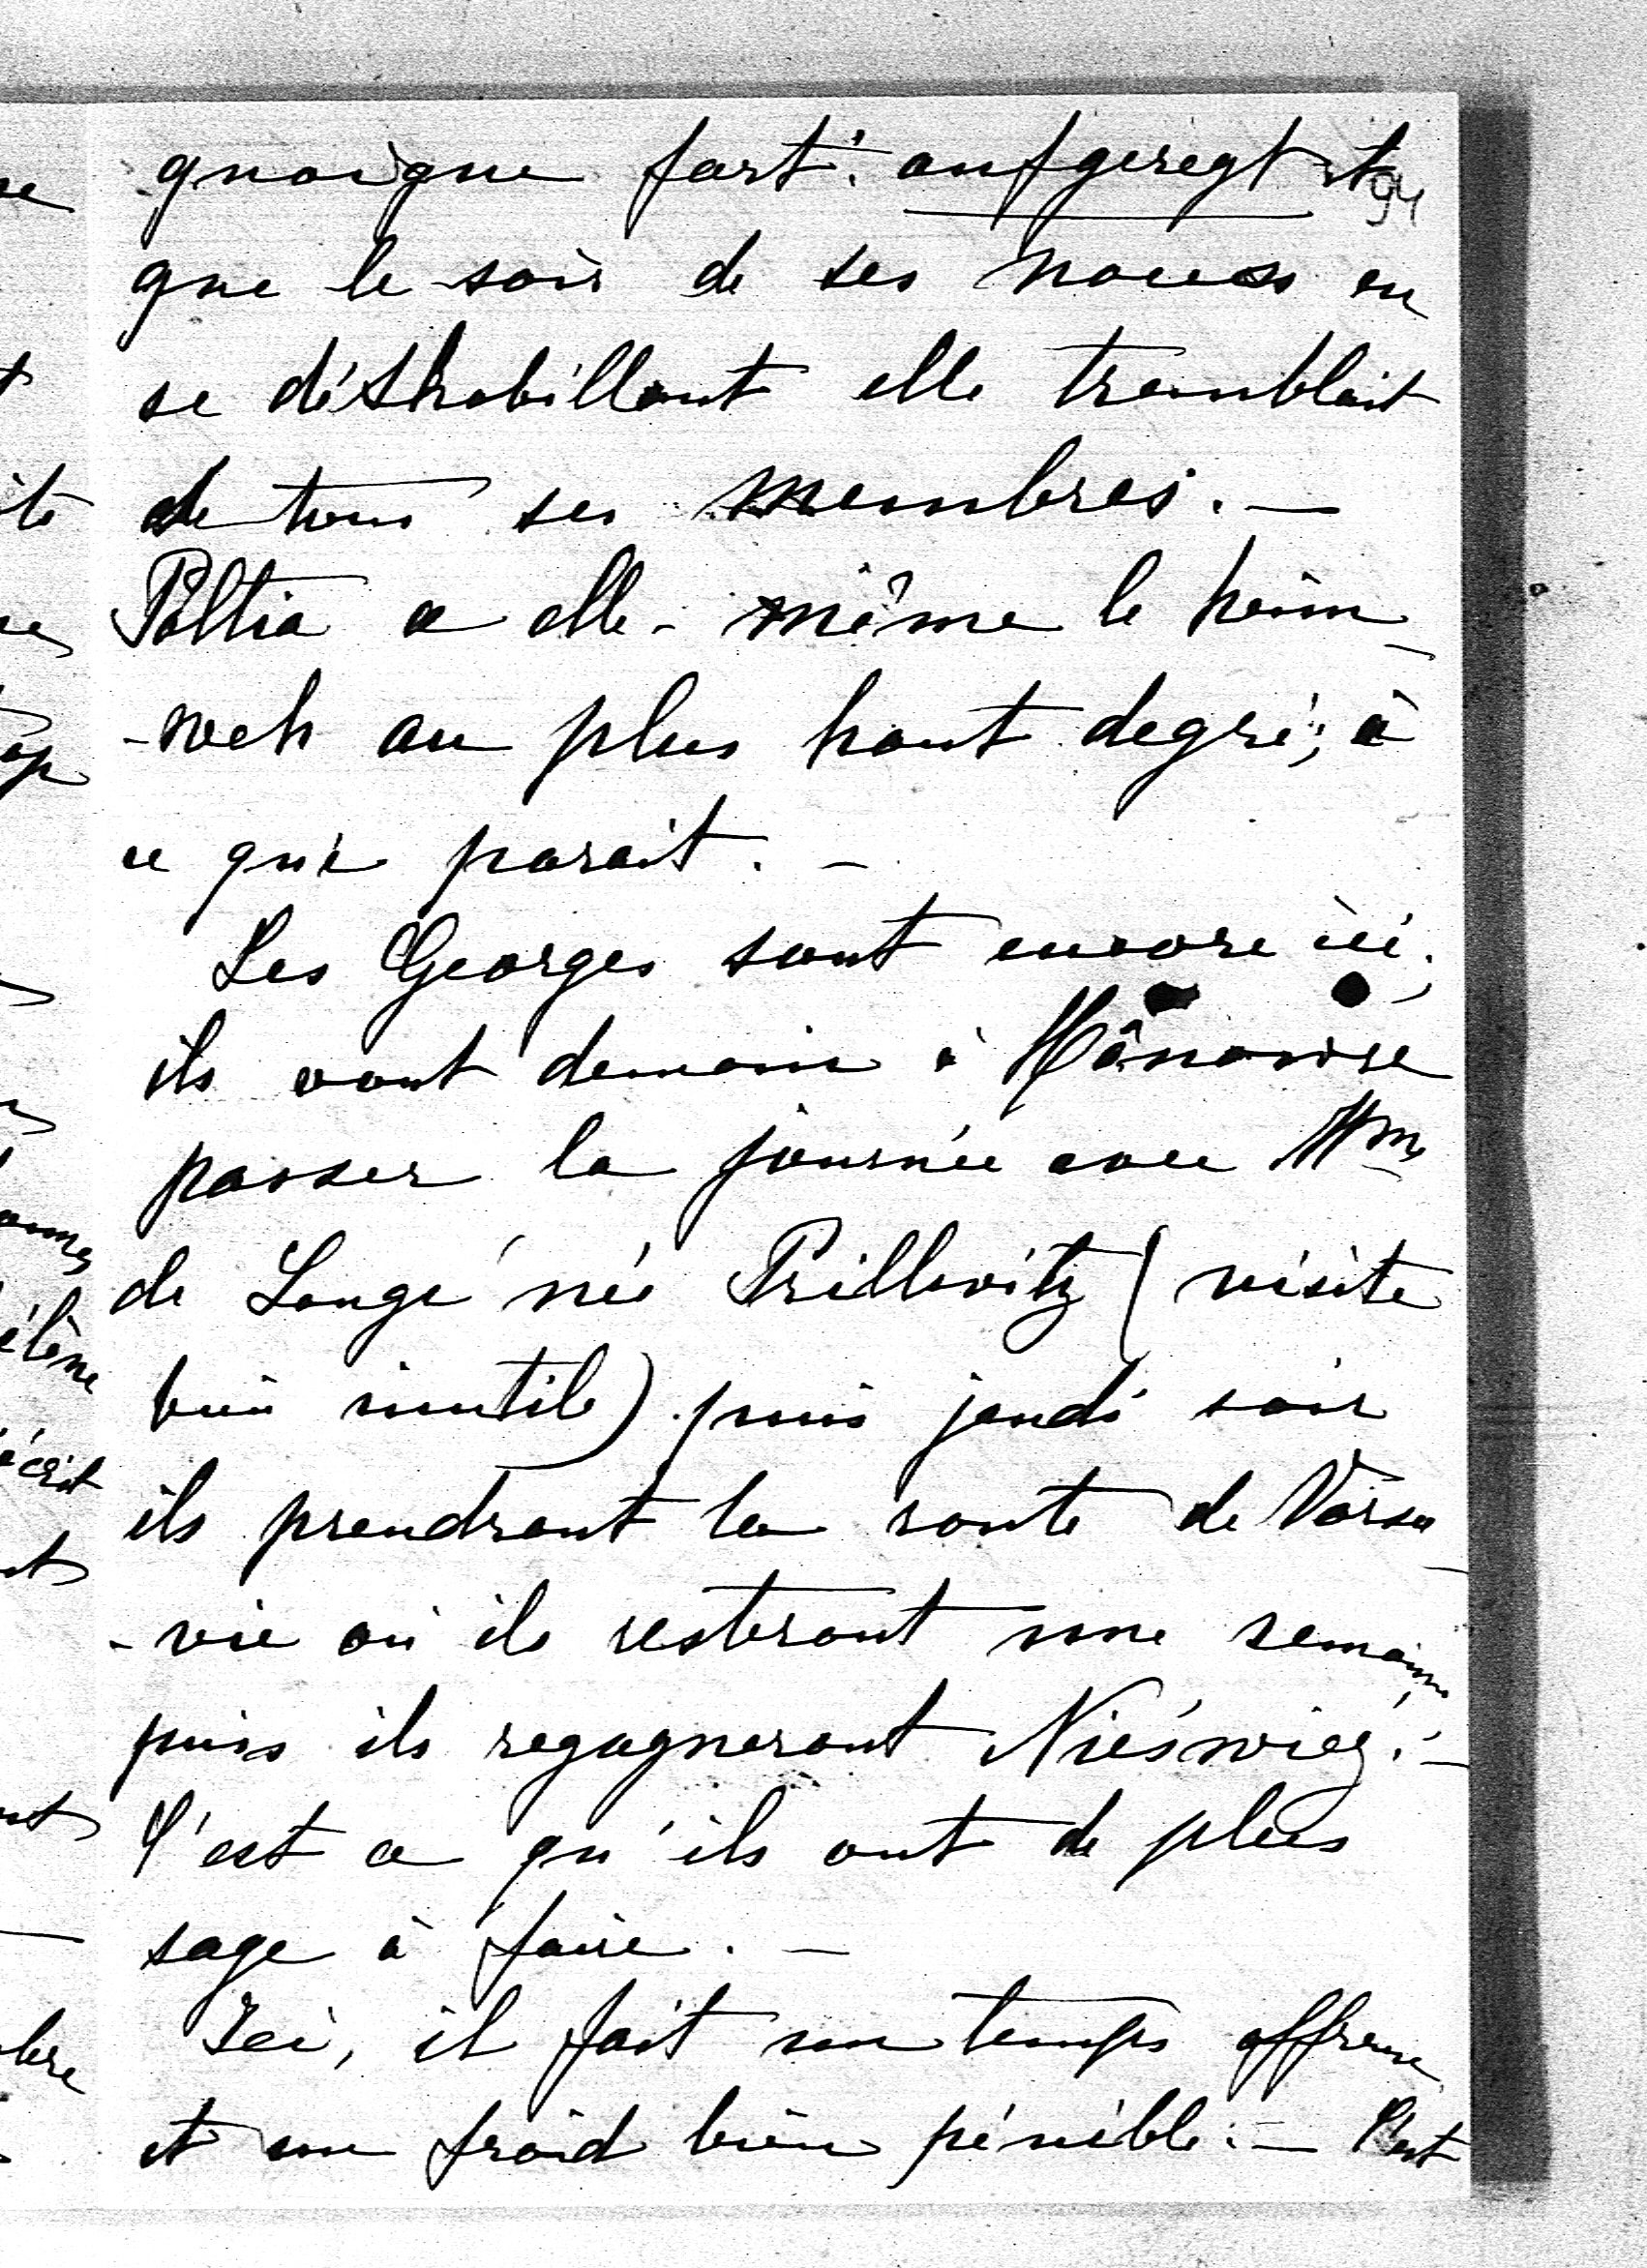 quoique fort aufgeregt et
94
que le soir de ses noces en
se déshabillant elle tremblait
de tous ses membres. —
Paltia a elle-même le heim-
-weh au plus haut degré, à
ce qui parait. —
Les Georges sont encore ici,
ils vont demain à Hânovre
passer la journée avec Mme
de Lange née Prillwitz (visite
bien inutile) puis jeudi soir
ils prendront la route de Varso-
-vie où ils resteront une semaine
puis ils regagneront Nieśwież. —
C'est ce qu'ils ont de plus
sage à faire. —
Ici, il fait un temps affreux
et un froid bien pénible. — C'est